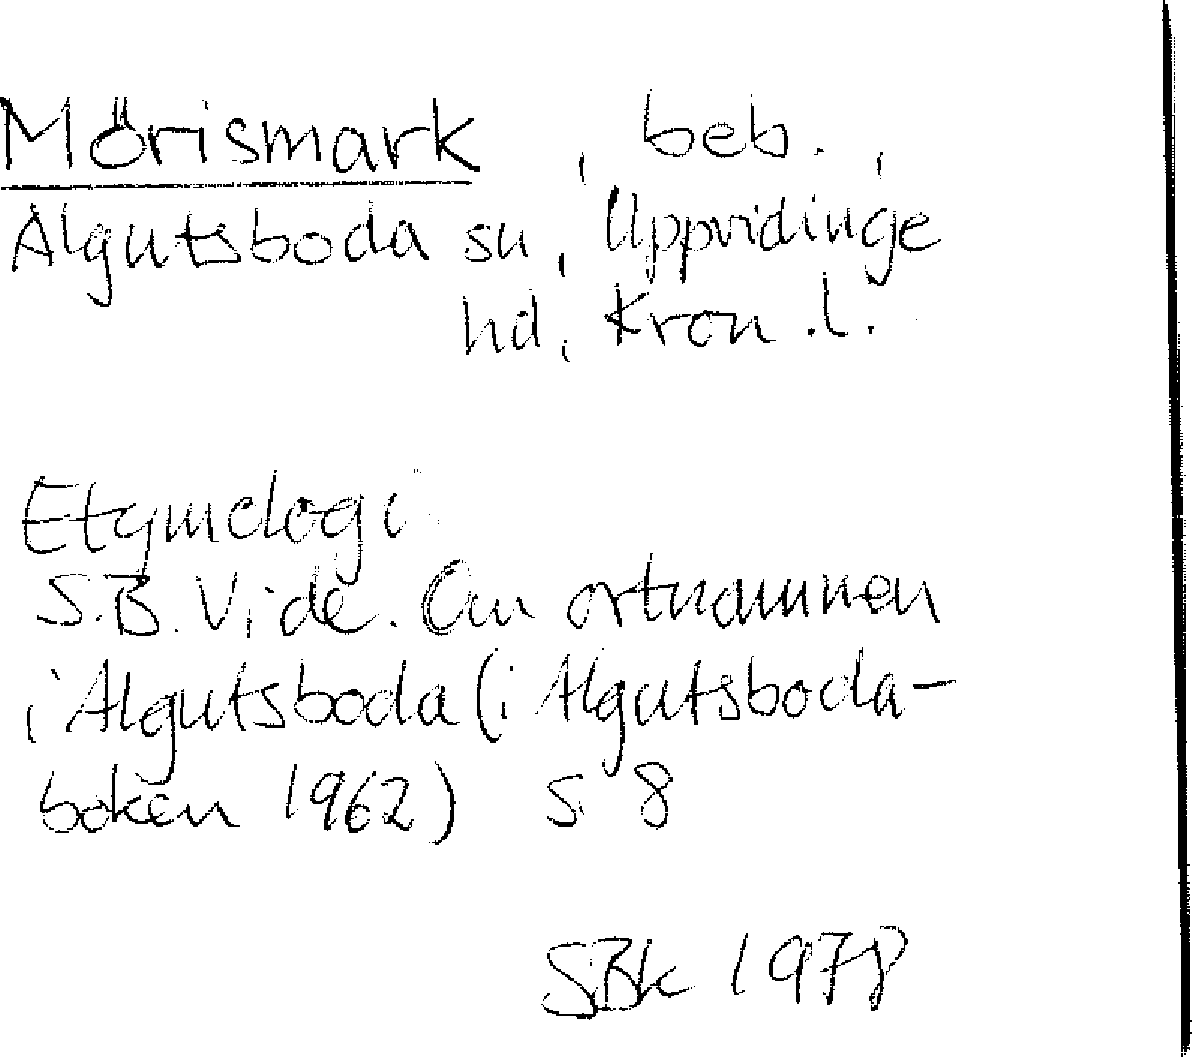 Mörismark, beb.,
Algutsboda sn, Uppvidinge
hd, Kron.l.
Etymologi
S.B. Vide. Om ortnamnen
i Algutsboda (i Algutsboda-
boken 1962) s. 8
SBk 1978